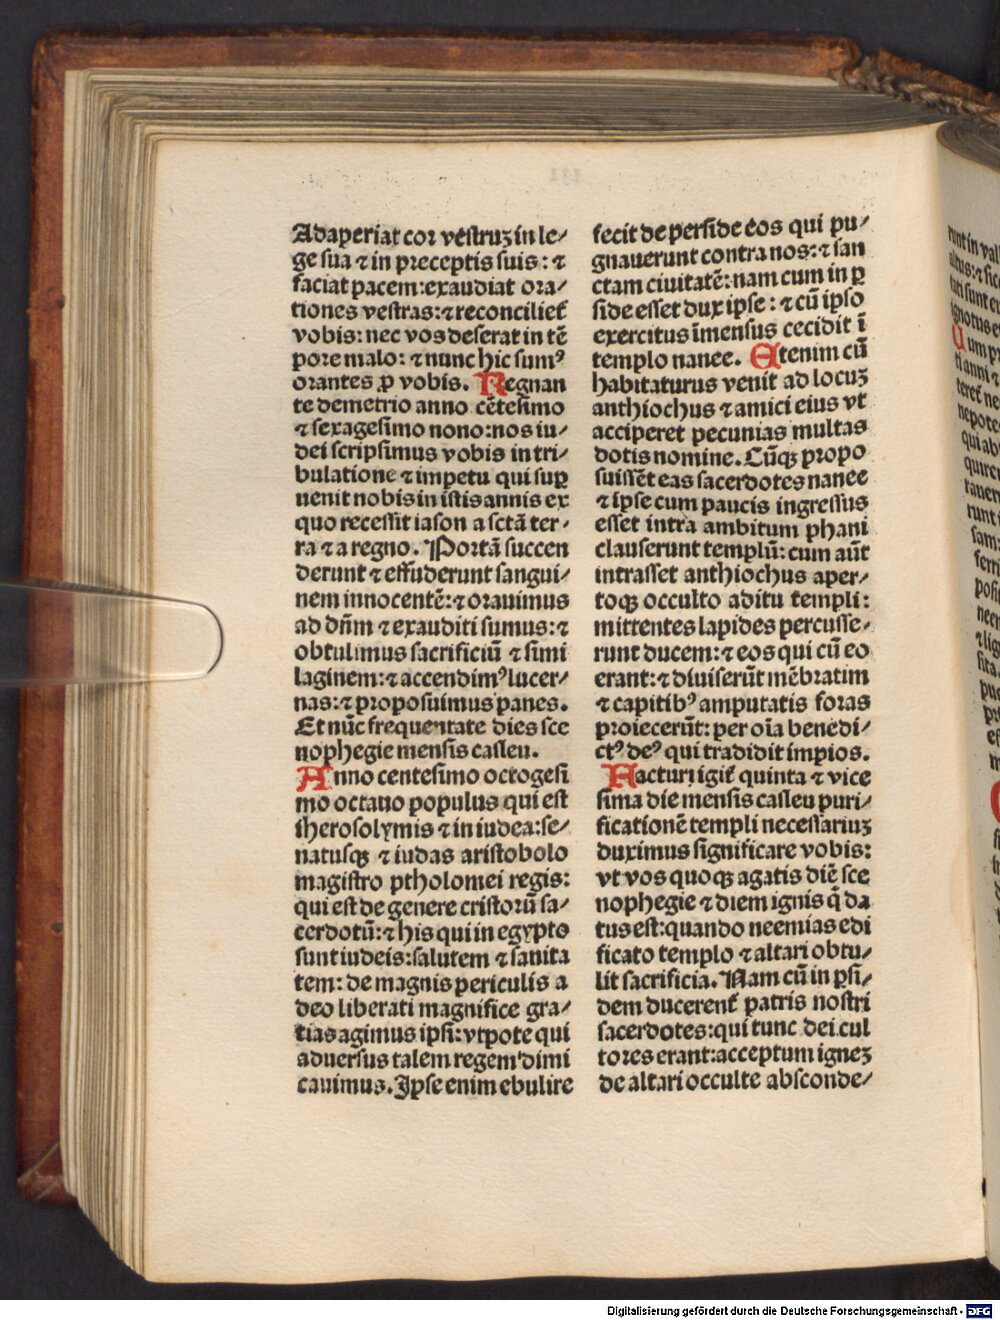 Adaperiat cor vestruꝫ in le⸗
ge sua ⁊ in preceptis suis: ⁊
faciat pacem: exaudiat ora⸗
tiones vestras: ⁊ reconcilieť
vobis: nec vos deserat in tē
pore malo: ⁊ nunc hic sumꝰ
orantes ꝓ vobis. Regnan
te demetrio anno cētesimo
⁊ sexagesimo nono: nos iu⸗
dei scripsimus vobis in tri⸗
bulatione ⁊ impetu qui suꝑ
uenit nobis in istis annis ex
quo recessit iason a sctā ter⸗
ra ⁊ a regno. Portā succen
derunt ⁊ effuderunt sangui⸗
nem innocentē: ⁊ orauimus
ad dn̄m ⁊ exauditi sumus: ⁊
obtulimus sacrificiū ⁊ simi
laginem: ⁊ accendimꝰ lucer⸗
nas: ⁊ proposuimus panes.
Et nūc frequentate dies sce
nophegie mensis casleu.
Anno centesimo octogesi
mo octauo populus qui est
iherosolymis ⁊ in iudea: se⸗
natusqꝫ ⁊ iudas aristobolo
magistro ptholomei regis:
qui est de genere cristorū sa⸗
cerdotū: ⁊ his qui in egypto
sunt iudeis: salutem ⁊ sanita
tem: de magnis periculis a
deo liberati magnifice gra⸗
tias agimus ipsi: vtpote qui
aduersus talem regem dimi
cauimus. Ipse enim ebulire
fecit de perside eos qui pu⸗
gnauerunt contra nos: ⁊ san
ctam ciuitatē: nam cum in ꝑ
side esset dux ipse: ⁊ cū ipso
exercitus īmensus cecidit ī
templo nanee. Etenim cū
habitaturus venit ad locuꝫ
anthiochus ⁊ amici eius vt
acciperet pecunias multas
dotis nomine. Cūqꝫ propo
suissēt eas sacerdotes nanee
⁊ ipse cum paucis ingressus
esset intra ambitum phani
clauserunt templū: cum aūt
intrasset anthiochus aper⸗
toqꝫ occulto aditu templi:
mittentes lapides percusse⸗
runt ducem: ⁊ eos qui cū eo
erant: ⁊ diuiserūt mēbratim
⁊ capitibꝰ amputatis foras
proiecerūt: per oīa benedi⸗
ctꝰ deꝰ qui tradidit impios.
Facturi igiť quinta ⁊ vice
sima die mensis casleu puri⸗
ficationē templi necessariuꝫ
duximus significare vobis:
vt vos quoqꝫ agatis diē sce
nophegie ⁊ diem ignis q̇ da
tus est: quando neemias edi
ficato templo ⁊ altari obtu⸗
lit sacrificia. Nam cū in ꝑsi⸗
dem ducerenť patris nostri
sacerdotes: qui tunc dei cul
tores erant: acceptum igneꝫ
de altari occulte absconde⸗
Digitalisierung gefördert durch die Deutsche Forschungsgemeinschaft - DFG